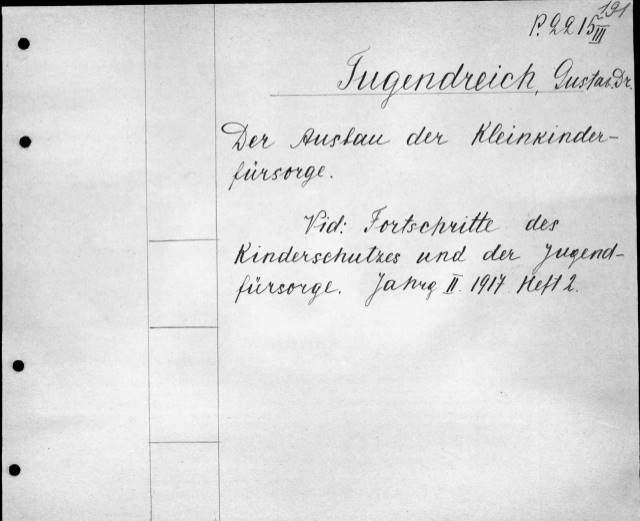 191
P. 2215
III
Tugendreich, Gustav. Dr.
Der Ausbau der Kleinkinder-
fürsorge.
Vid: Fortschritte des
Kinderschutzes und der Jugend-
fürsorge. Jahrg II. 1917 Heft 2.